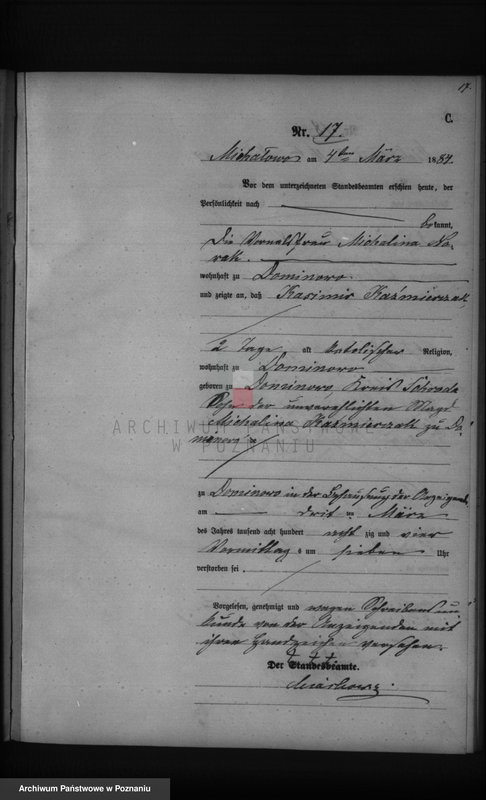 17.
C.
Nr. 17.
Michałowo am 4ten März 1884.
Vor dem unterzeichneten Standesbeamten erschien heute, der
Persönlichkeit nach
bekannt,
die Michalina No-
wak
wohnhaft zu Dominowo
und zeigte an, daß Kasimir Kaźmierczak
2 Tage alt katolischer Religion,
wohnhaft zu Dominowo
geboren zu Dominowo, Kreis Schroda
Sohn der unverehlichten Magd
Michalina Kaźmierczak zu Do-
minowo
ARCHIWUM PAŃSTWOWE
W POZNANIU
zu Dominowo in der Behausung der Anzeigenden
am drit en März
des Jahres tausend acht hundert acht zig und vier
Vormittags um sieben Uhr
verstorben sei.
Vorgelesen, genehmigt und wegen Schreibensun-
kunde von der Anzeigenden mit
ihren Handzeichen versehen.
+ + +
Der Standesbeamte.
Archiwum Państwowe w Poznaniu